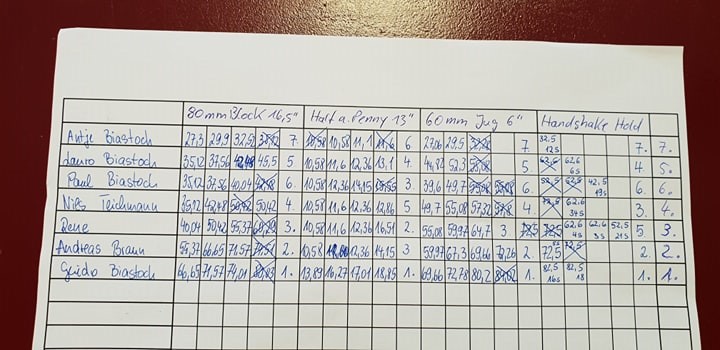 80mm Block 16,5" Half a. Penny 13" 60mm Jug 6" Handshake Hold
Antje Biastoch 27,3 29,9 32,52 7. 10,58 10,58 11,1 11,6 6 27,06 29,5 7. 32,5 12s 7. 7.
Lauro Biastoch 35,12 37,56 45,5 5 10,58 11,6 12,36 13,1 4. 52,3 5 62,5 62,6 6s 4 5.
Paul Biastoch 35,12 37,56 40,04 6. 10,58 12,36 14,15 3. 39,6 49,7 6. 52,5 52,5 42,5 19s 6. 6.
Nils Teichmann 35,12 42,48 50,42 4. 10,58 11,6 12,36 12,86 5 49,7 55,08 57,32 4. 72,5 62,6 34s 3. 4.
Rene 40,04 50,42 55,37 3. 10,58 11,6 12,36 16,51 2. 55,08 59,97 64,7 3 72,5 72,5 62,6 4s 62,6 3s 52,5 21s 5 3.
Andreas Braun 55,37 66,65 71,57 2. 10,58 12,36 14,15 3 59,97 67,3 69,66 72,26 2. 72,5 72,5 2. 2.
Guido Biastoch 66,65 71,57 74,01 1. 13,89 16,27 17,01 18,85 1. 69,66 72,78 80,2 1. 82,5 16s 82,5 18 1. 1.